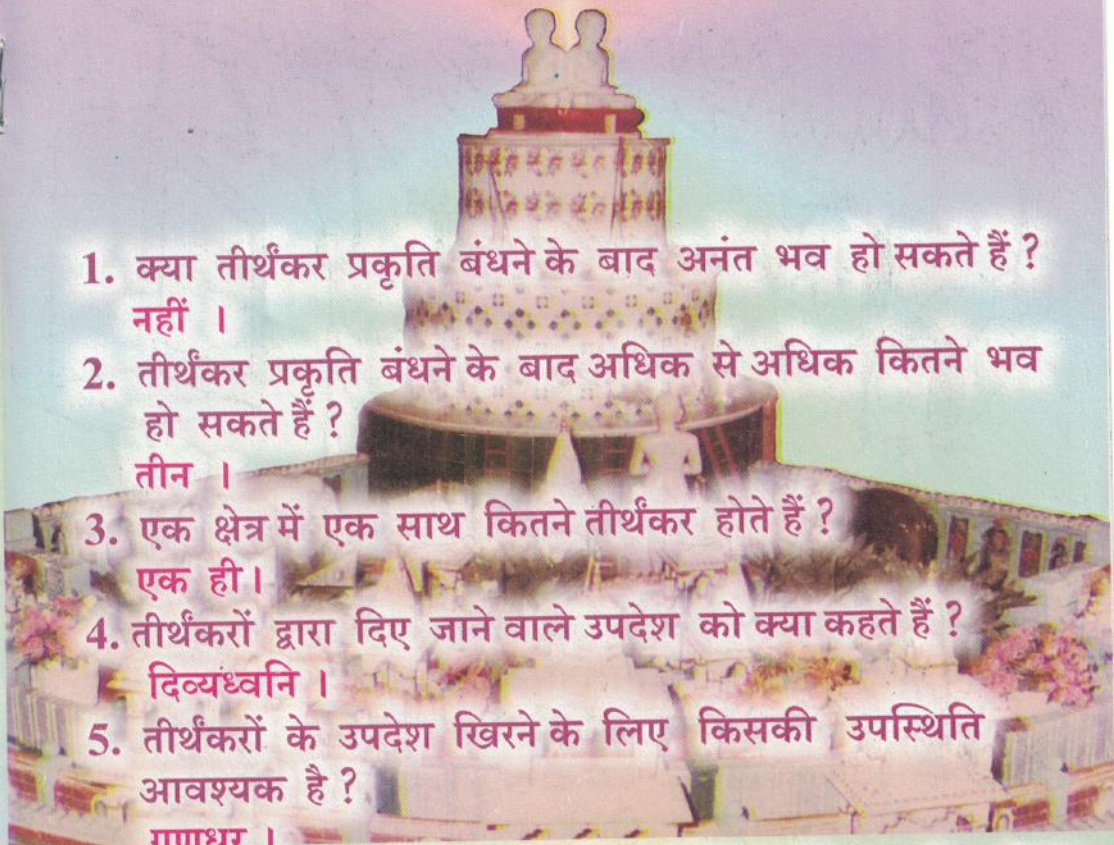 1. क्या तीर्थंकर प्रकृति बंधने के बाद अनंत भव हो सकते हैं ?
नहीं ।
2. तीर्थंकर प्रकृति बंधने के बाद अधिक से अधिक कितने भव
हो सकते हैं ?
तीन ।
3. एक क्षेत्र में एक साथ कितने तीर्थंकर होते हैं ?
एक ही।
4. तीर्थंकरों द्वारा दिए जाने वाले उपदेश को क्या कहते हैं ?
दिव्यध्वनि ।
5. तीर्थंकरों के उपदेश खिरने के लिए किसकी उपस्थिति
आवश्यक है ?
गणधर ।